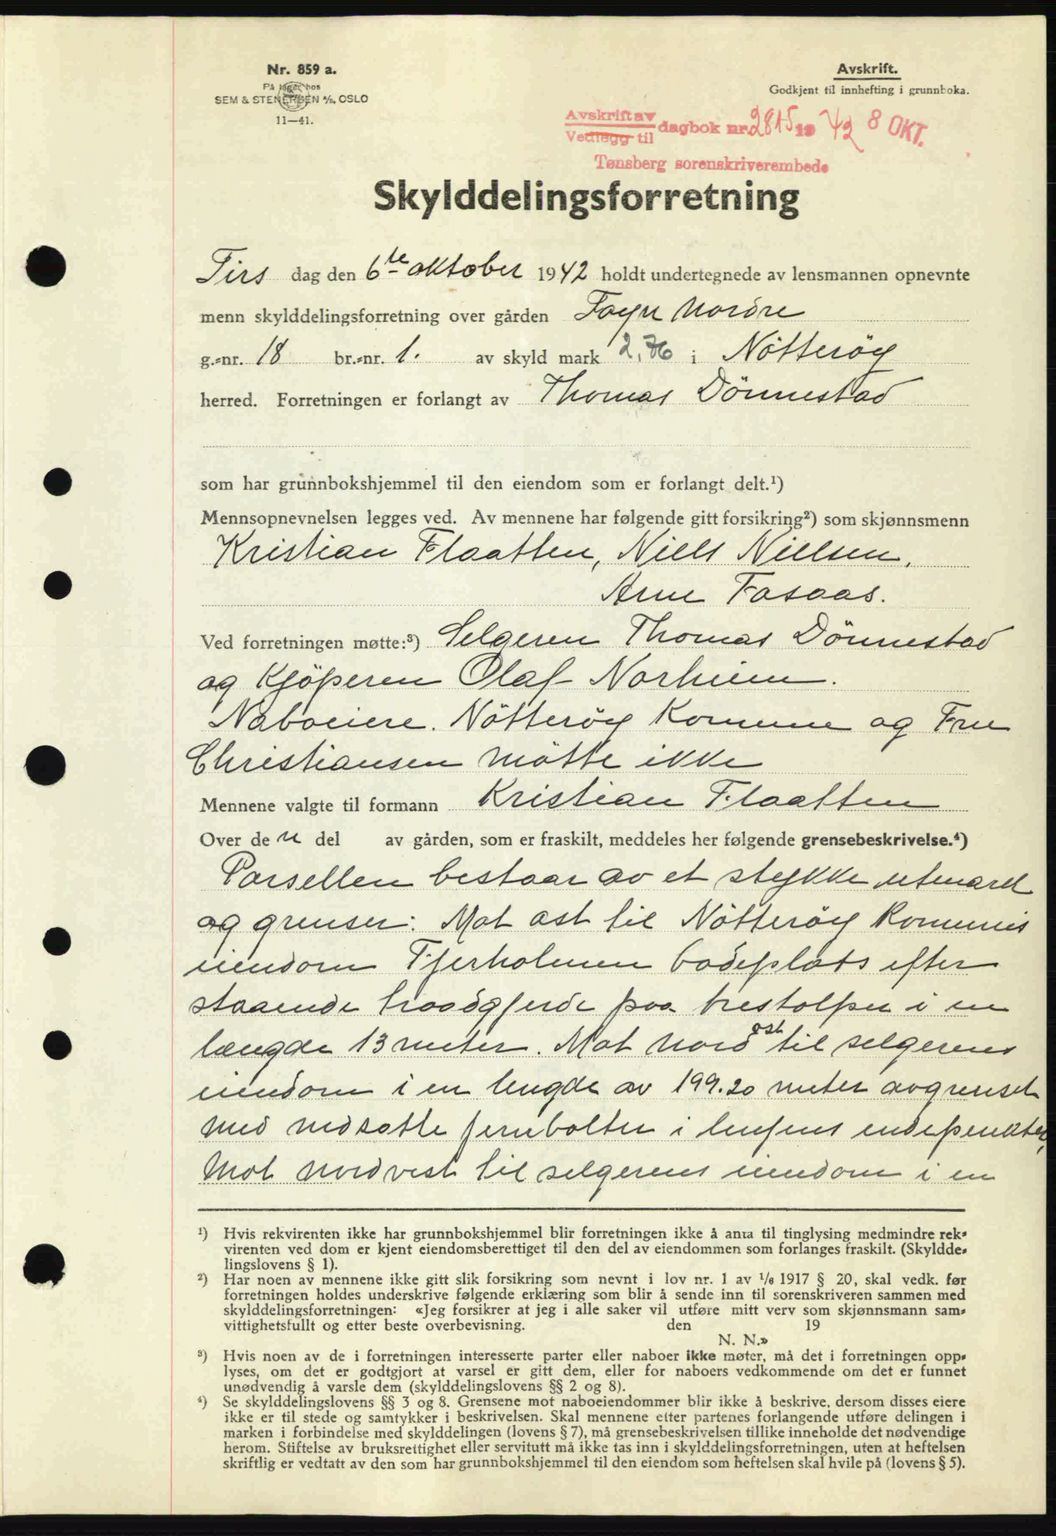 Nr. 859 a.
På lager hos
SEM & STENERSEN A/S, OSLO
11—41.
Avskrift.
Godkjent til innhefting i grunnboka.
Avskrift av
Vedlegg til dagbok nr. 2815 19 42 8 OKT.
Tønsberg sorenskriverembede
Skylddelingsforretning
Tirs dag den 6te oktober 1942 holdt undertegnede av lensmannen opnevnte
menn skylddelingsforretning over gården Foyn Nordre
g.-nr. 18 br.-nr. 1. av skyld mark 2,76 i Nötteröy
herred. Forretningen er forlangt av Thomas Dönnestad
som har grunnbokshjemmel til den eiendom som er forlangt delt.¹)
Mennsopnevnelsen legges ved. Av mennene har følgende gitt forsikring²) som skjønnsmenn
Kristian Flaatten, Niels Nielsen,
Arne Fasaas.
Ved forretningen møtte:³) Selgeren Thomas Dönnestad
og Kjöperen Olaf Norheim.
Naboeiere. Nötteröy Komune og Fru
Christiansen mötte ikke
Mennene valgte til formann Kristian Flaatten
Over de n del av gården, som er fraskilt, meddeles her følgende grensebeskrivelse.⁴)
Parsellen bestaar av et stykke utmark
og grenser: Mot öst til Nötteröy Komunes
eiendom Fjerholmen badeplats efter
staaende traadgjerde paa trestolper i en
længde 13 meter. Mot nordöst til selgerens
eiendom i en lengde av 199.20 meter avgrenset
med nedsatte jernbolter i linjens endepunkter,
Mot nordvest til selgerens eiendom i en
¹) Hvis rekvirenten ikke har grunnbokshjemmel blir forretningen ikke å anta til tinglysing medmindre rek-
virenten ved dom er kjent eiendomsberettiget til den del av eiendommen som forlanges fraskilt. (Skyldde-
lingslovens § 1).
²) Har noen av mennene ikke gitt slik forsikring som nevnt i lov nr. 1 av 1/6 1917 § 20, skal vedk. før
forretningen holdes underskrive følgende erklæring som blir å sende inn til sorenskriveren sammen med
skylddelingsforretningen: «Jeg forsikrer at jeg i alle saker vil utføre mitt verv som skjønnsmann sam-
vittighetsfullt og etter beste overbevisning. den 19
N. N.»
³) Hvis noen av de i forretningen interesserte parter eller naboer ikke møter, må det i forretningen opp-
lyses, om det er godtgjort at varsel er gitt dem, eller for naboers vedkommende om det er funnet
unødvendig å varsle dem (skylddelingslovens §§ 2 og 8).
⁴) Se skylddelingslovens §§ 3 og 8. Grensene mot naboeiendommer blir ikke å beskrive, dersom disses eiere
ikke er til stede og samtykker i beskrivelsen. Skal mennene etter partenes forlangende utføre delingen i
marken i forbindelse med skylddelingen (lovens § 7), må grensebeskrivelsen tillike inneholde det nødvendige
herom. Stiftelse av bruksrettighet eller servitutt må ikke tas inn i skylddelingsforretningen, uten at heftelsen
skriftlig er vedtatt av den som har grunnbokshjemmel til den eiendom som heftelsen skal hvile på (lovens § 5).